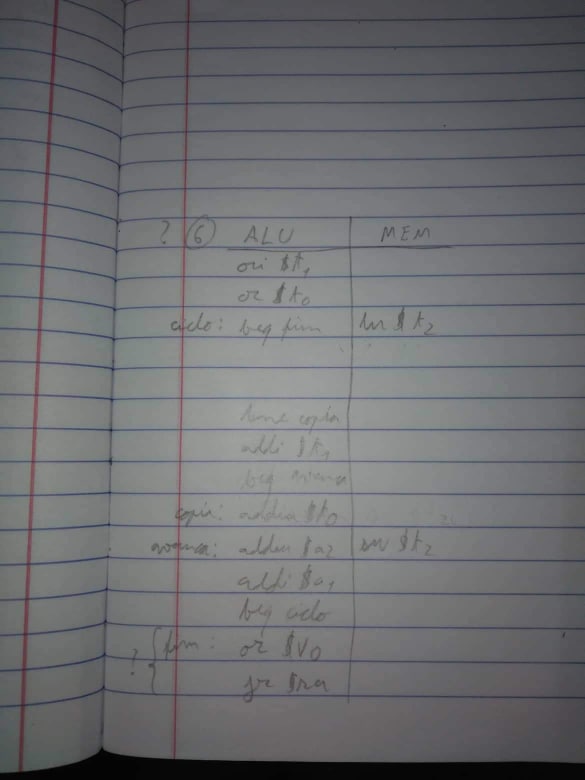 ? 6 ALU MEM
ori $t1
or $t0
ciclo: beq fim lw $t2
bne copia
addi $t1
beq avanca
copia: addiu $t0
avanca: addiu $a2 sw $t2
addi $a1
beq ciclo
? { fim: or $v0
jr $ra